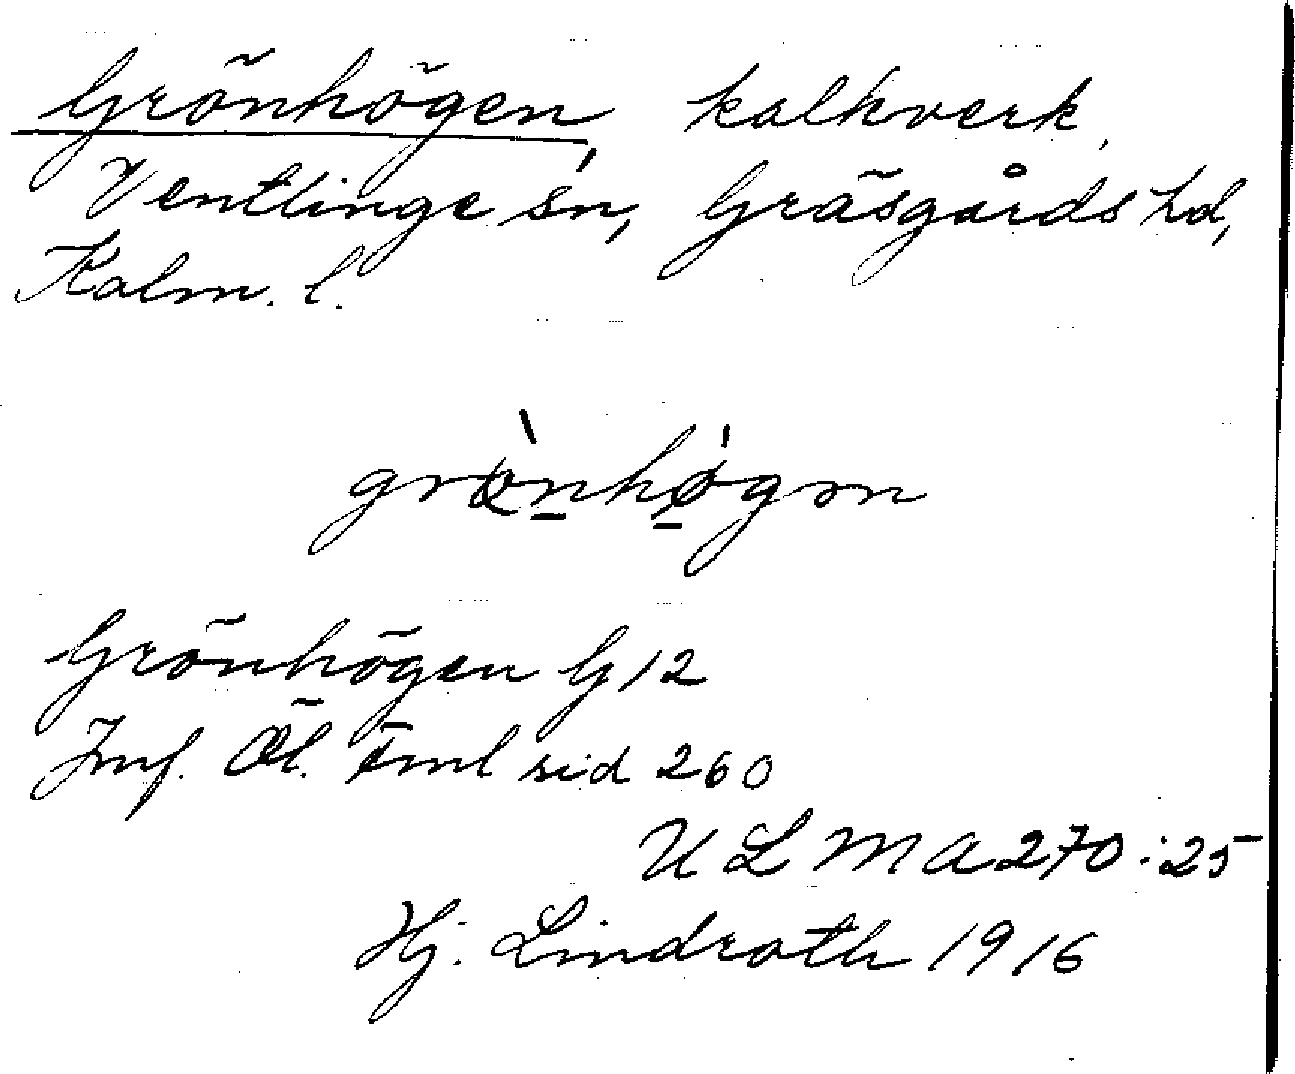 Grönhögen, kalkverk,
Ventlinge sn, Gräsgårds hd,
Kalm. l.
grø̀nhǿgən
Grönhögen G 12
Jmf. Öl. Fml sid 260
ULMA 270:25
Hj. Lindroth 1916